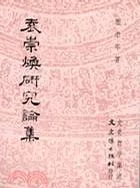 閻崇年著
袁崇煥研究論集
文史哲學集成
文史哲出版社印行